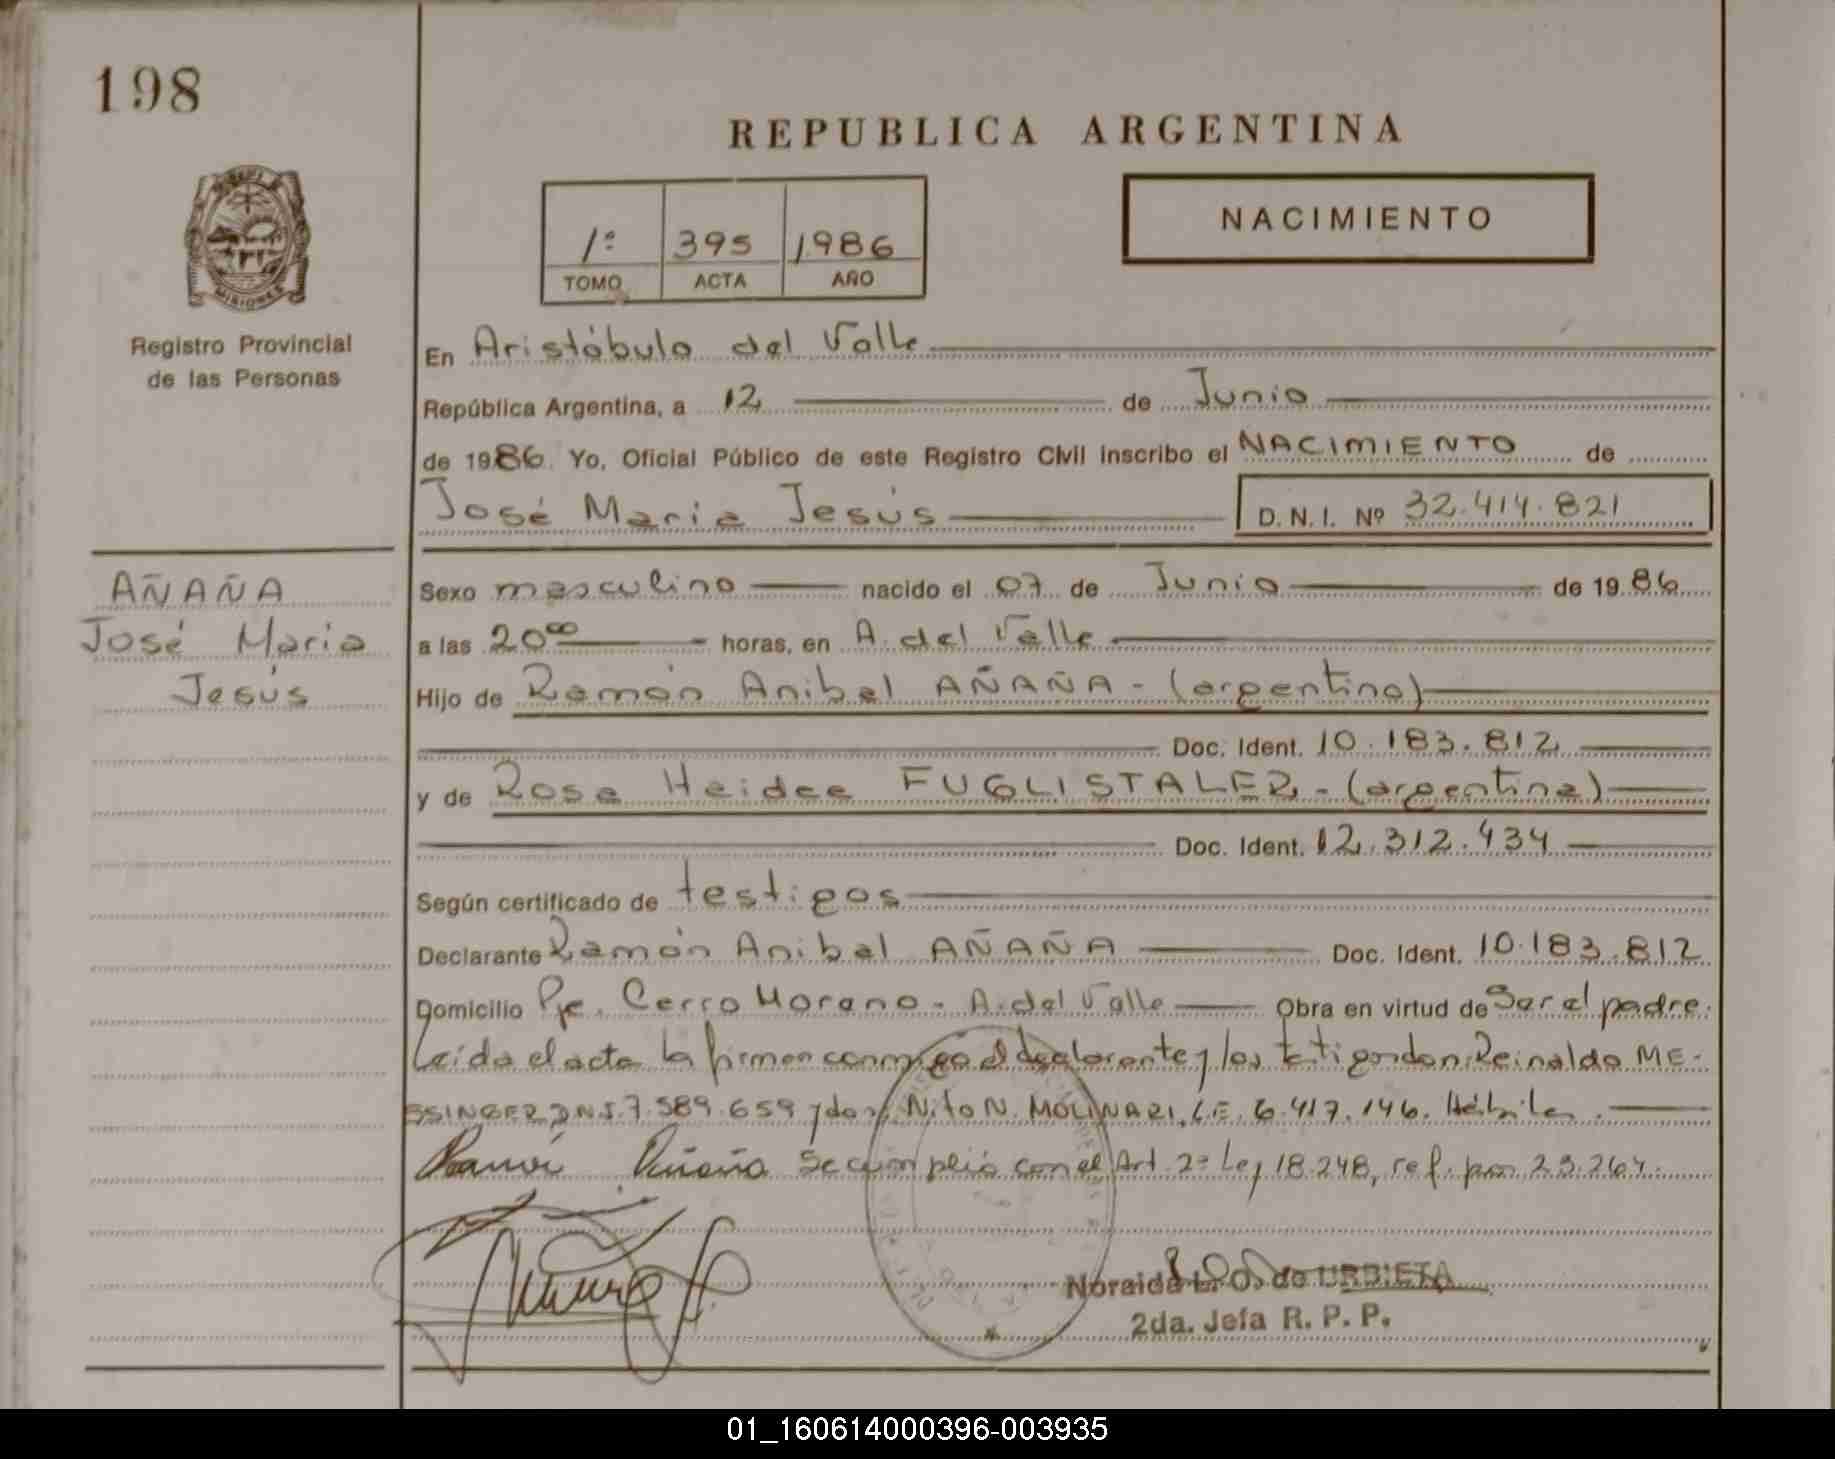 198
REPUBLICA ARGENTINA
NACIMIENTO
1º 395 1986
TOMO ACTA AÑO
MISIONES
Registro Provincial
de las Personas
En Aristóbulo del Valle
República Argentina, a 12 de Junio
de 1986. Yo, Oficial Público de este Registro Civil inscribo el NACIMIENTO de
José Maria Jesús D.N.I. Nº 32.414.821
AÑAÑA
José Maria
Jesús
Sexo masculino nacido el 07 de Junio de 1986
a las 20⁰⁰ horas, en A. del Valle
Hijo de Ramón Anibal AÑAÑA - (argentino)
Doc. Ident. 10.183.812
y de Rosa Haidee FUGLISTALER - (argentina)
Doc. Ident. 12.312.434
Según certificado de testigos
Declarante Ramón Anibal AÑAÑA Doc. Ident. 10.183.812
Domicilio Pje. Cerro Moreno - A. del Valle Obra en virtud de Ser el padre.
Leída el acta la firman conmigo el declarante y los testigos don Reinaldo ME-
SSINGER D.N.I. 7.589.659 y don Nito N. MOLINARI, L.E. 6.417.146. Hábiles.
Ramón Añaña Se cumplió con el Art. 2º Ley 18.248, ref. por 23.264.
Noraida L. O. de URBIETA
2da. Jefa R. P. P.
01_160614000396-003935